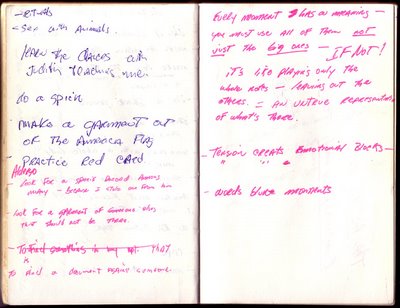 - Rituals
- Sex with Animals.
learn the dances with
Judith teaching me.
do a spin
make a garment out
of the America Flag
- Practice Red Card
- look for a
money - because I
- look for a garment of
that should not be there.
- To find something in my apt. that
is
to start a document against someone.
Every moment has a meaning -
you must use all of them not
just the big ones -
IF NOT!
it's like playing only the
whole notes - leaving out the
others. = AN UNTRUE Representation
of what's there.
- Tension creates Emotional Blocks -
" " "
- words blurr moments